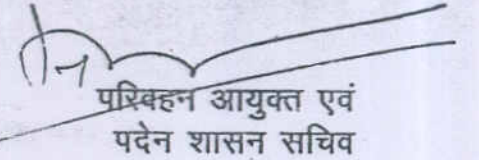 परिवहन आयुक्त एवं
पदेन शासन सचिव